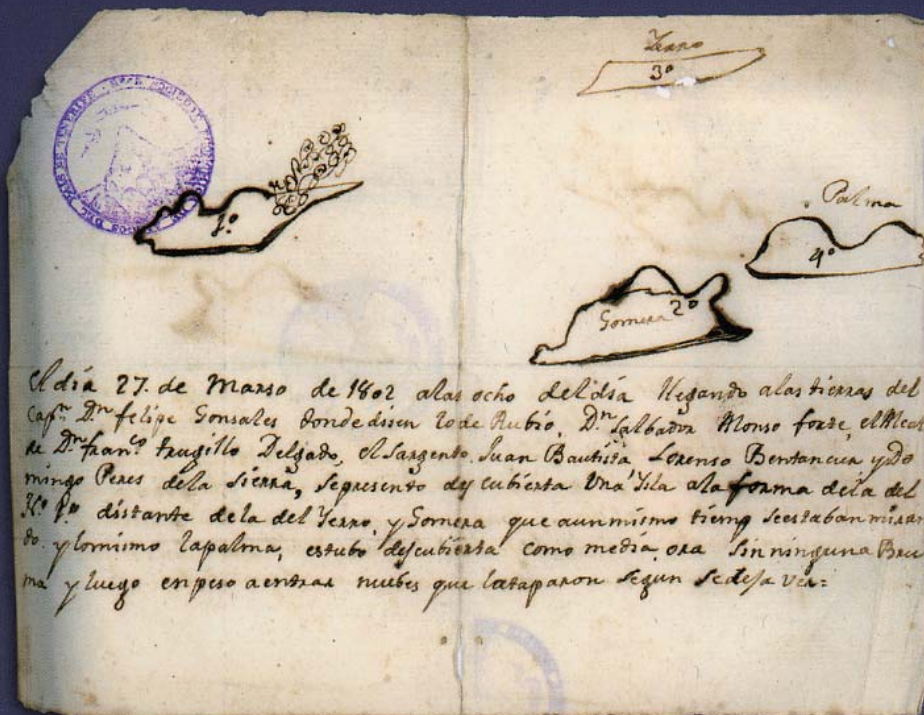 Yerro
3º
1º
Palma
4º
Gomera 2º
El dia 27. de Marso de 1802 alas ocho del dia llegando alas tierras del
Capn. Dn. felipe Gonsales donde disen lo de Rubio, Dn. Salbador Alonso forte, el Alcal
de Dn. franco. trugillo Delgado, el Sargento Juan Bautista Lorenso Bentancur y Do
mingo Peres dela Sierra, sepresento descubierta Una Ysla ala forma dela del
Nº. 1º. distante dela del Yerro, y Gomera que aunmismo tiempo seestaban miran
do. y lomismo lapalma, estubo descubierta como media ora sin ninguna Bru
ma y luego enpeso aentrar nubes que lataparon segun sedeja ver=